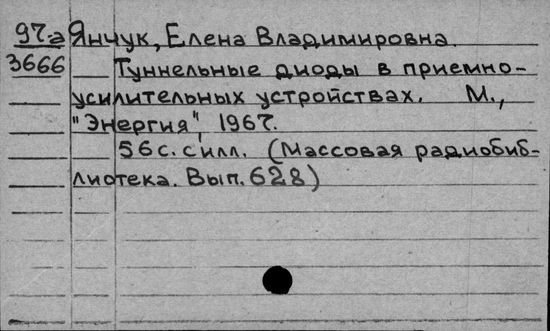 97-а Янчук, Елена Владимировна.
3666 Туннельные диоды в приемно-
усилительных устройствах. М.,
"Энергия", 1967.
56 с. с илл. (Массовая радиобиб-
лиотека. Вып. 628)